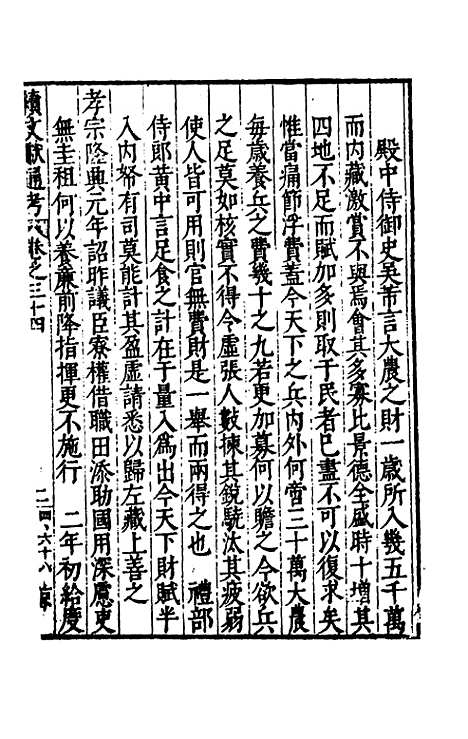 殿中侍御史吳芾言大農之財一歲所入幾五千萬
而內藏激賞不與焉會其多寡比景德全盛時十增其
四地不足而賦加多則取于民者已盡不可以復求矣
惟當痛節浮費蓋今天下之兵內外何啻三十萬大農
每歲養兵之費幾十之九若更加募何以贍之今欲兵
之足莫如核實不得令虛張人數揀其銳驍汰其疲弱
使人皆可用則官無費財是一舉而兩得之也　禮部
侍郎黃中言足食之計在于量入為出今天下財賦半
入內帑有司莫能計其盈虛請悉以歸左藏上善之
孝宗隆興元年詔昨議臣寮權借職田添助國用深慮吏
無圭租何以養廉前降指揮更不施行　二年初給慶
續文獻通考 卷之三十四
二四、六十八